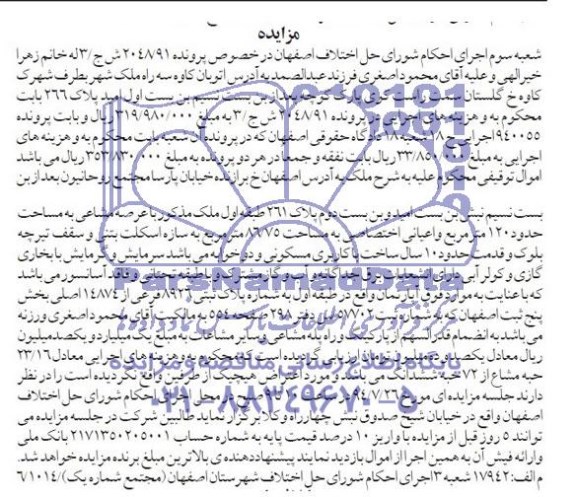 مزایده
شعبه سوم اجرای احکام شورای حل اختلاف اصفهان در خصوص پرونده ۲۰۴۸/۹۱ ش ح/۳ له خانم زهرا
خیرالهی و علیه آقای محمود اصغری فرزند عبدالصمد به آدرس اتوبان کاوه سه راه ملک شهر بطرف شهرک
کاوه خ گلستان کوی کوچه بعد از بن بست نسیم بن بست اول امید پلاک ۲۶۶ بابت
محکوم به و هزینه های اجرایی در پرونده ۲۰۴۸/۹۱ ش ح/۳ به مبلغ ۳۱۹/۹۸۰/۰۰۰ ریال و بابت پرونده
۹۴۰۰۵۵ اجرایی دادگاه حقوقی اصفهان که در پرونده آن شعبه بابت محکوم به و هزینه های
اجرایی به مبلغ ۳۳/۸۵۰/۰۰۰ ریال بابت نفقه و جمعا در هر دو پرونده به مبلغ ۳۵۳/۸۳۰/۰۰۰ ریال می باشد
اموال توقیفی محکوم علیه به شرح ملک به آدرس اصفهان خ برازنده خیابان پارسا مجتمع روحانیون بعد از بن
بست نسیم نبش بن بست امید و بن بست دوم پلاک ۲۶۱ طبقه اول ملک مذکور با عرصه مشاعی به مساحت
حدود ۱۲۰ متر مربع و اعیانی اختصاصی به مساحت ۸۶/۷۵ متر مربع به سازه اسکلت بتنی و سقف تیرچه
بلوک و قدمت حدود ۱۰ سال ساخت با کاربری مسکونی و دو خوابه می باشد سرمایش و گرمایش با بخاری
گازی و کولر آبی دارای انشعابات برق جداگانه و آب و گاز مشترک و فاقد آسانسور می باشد
که با عنایت به موارد فوق آپارتمان واقع در طبقه اول به شماره پلاک ثبتی ۸۹۲۲ فرعی از ۱۴۸۷۴ اصلی بخش
پنج ثبت اصفهان که به شماره ثبت ۵۷۷۰۲ دفتر ۲۹۸ صفحه ۵۵۴ به مالکیت آقای محمود اصغری ورزنه
می باشد به انضمام قدرالسهم از پارکینگ و راه پله مشاعی و سایر مشاعات به مبلغ یک میلیارد و یکصد میلیون
ریال معادل یکصد و ده میلیون تومان ارزیابی گردیده است که محکوم به و هزینه های اجرایی معادل ۲۳/۱۶
حبه مشاع از ۷۲ حبه ششدانگ می باشد و مورد اعتراض هیچیک از طرفین واقع نگردیده است را در نظر
دارند جلسه مزایده ای مورخ ۹۴/۷/۲۶ در ساعت ۱۰ صبح در محل اجرای احکام شورای حل اختلاف
اصفهان واقع در خیابان شیخ صدوق نبش چهارراه وکلا برگزار نماید طالبین شرکت در جلسه مزایده می
توانند ۵ روز قبل از مزایده با واریز ۱۰ درصد قیمت پایه به شماره حساب ۲۱۷۱۳۵۰۲۰۵۰۰۱ بانک ملی
و ارائه فیش آن به همین اجرا از اموال بازدید نمایند پیشنهاد دهنده ی بالاترین مبلغ برنده مزایده خواهد شد.
م الف: ۱۷۹۴۲ شعبه ۳ اجرای احکام شورای حل اختلاف شهرستان اصفهان (مجتمع شماره یک)/۶/۱۰۱۴
ParsNamadData
پایگاه اطلاع رسانی مناقصه و مزایده
۰۲۱-۸۸۳۴۹۶۷۰-۵